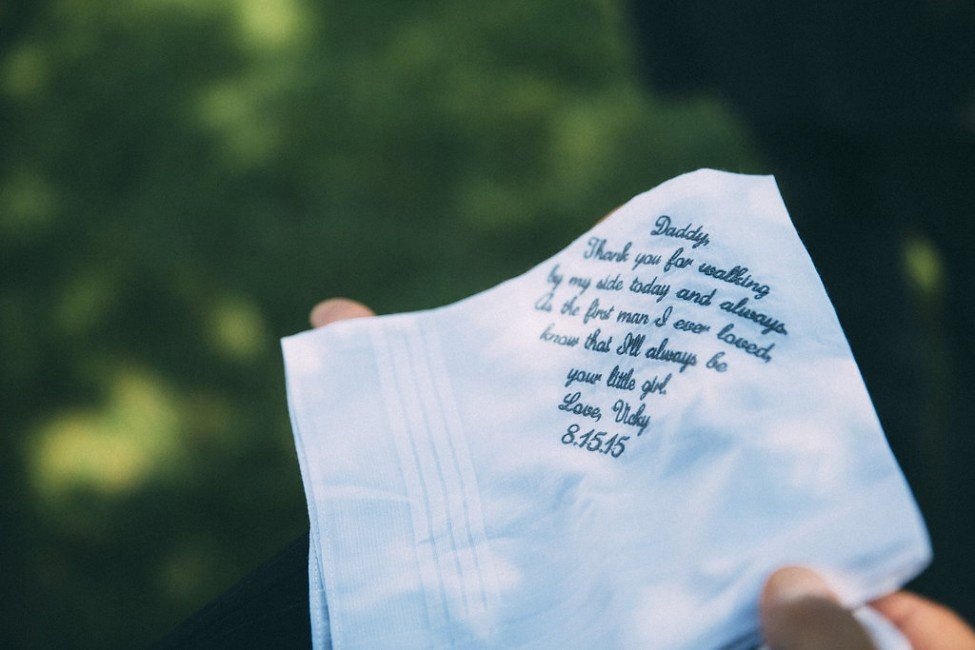 Daddy,
Thank you for walking
by my side today and always.
As the first man I ever loved,
know that I'll always be
your little girl.
Love, Vicky
8.15.15